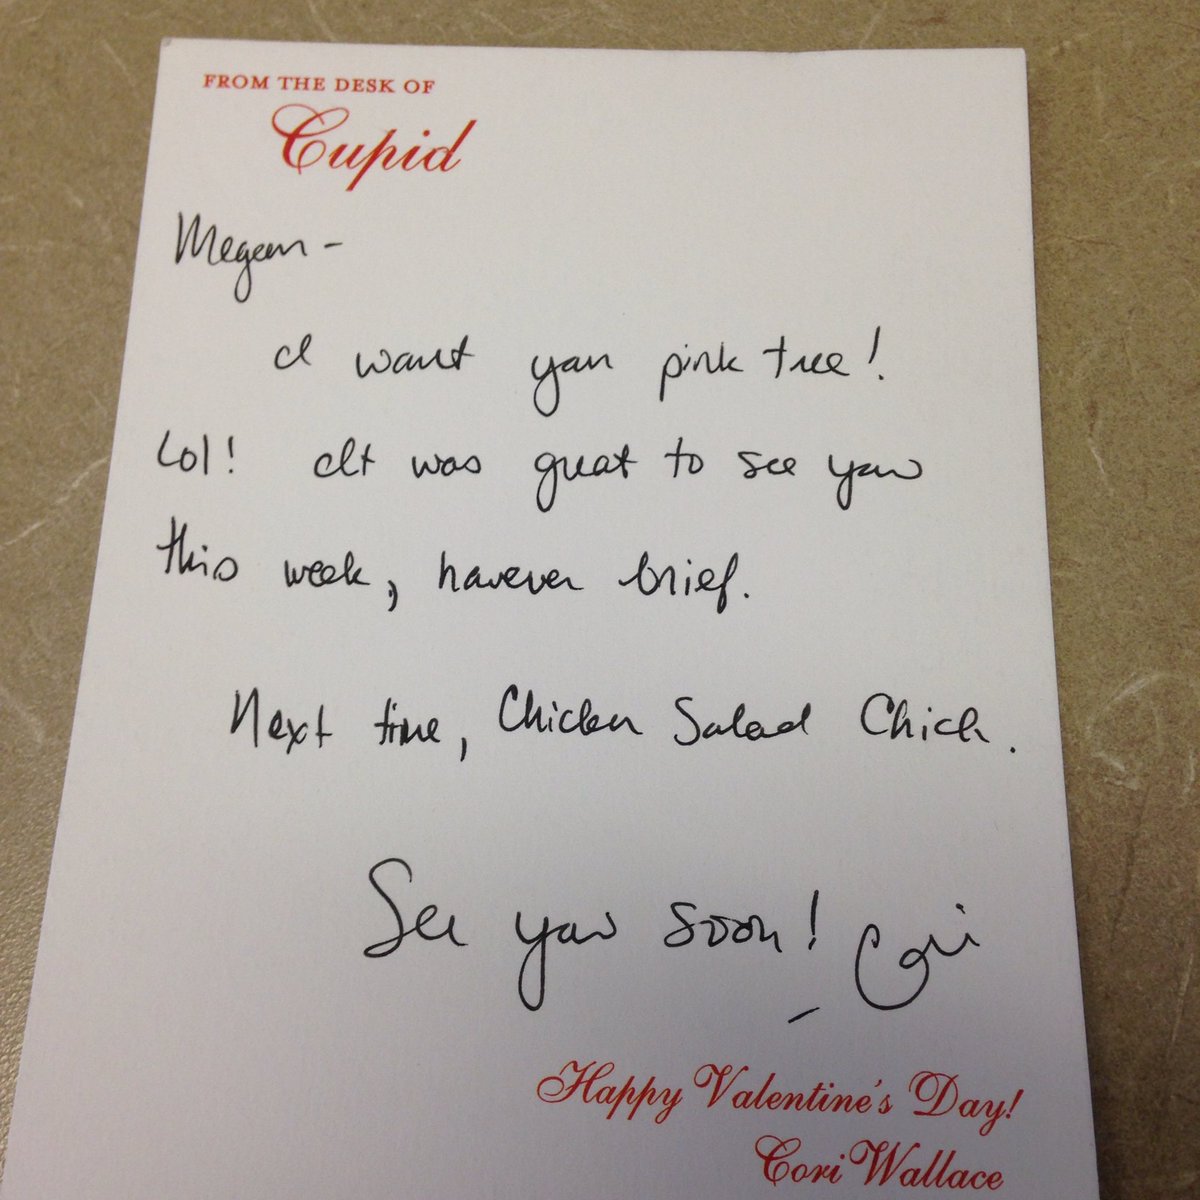 FROM THE DESK OF
Cupid
Megan -
I want your pink tree!
Lol! It was great to see you
this week, however brief.
Next time, Chicken Salad Chick.
See you soon!
- Cori
Happy Valentine's Day!
Cori Wallace